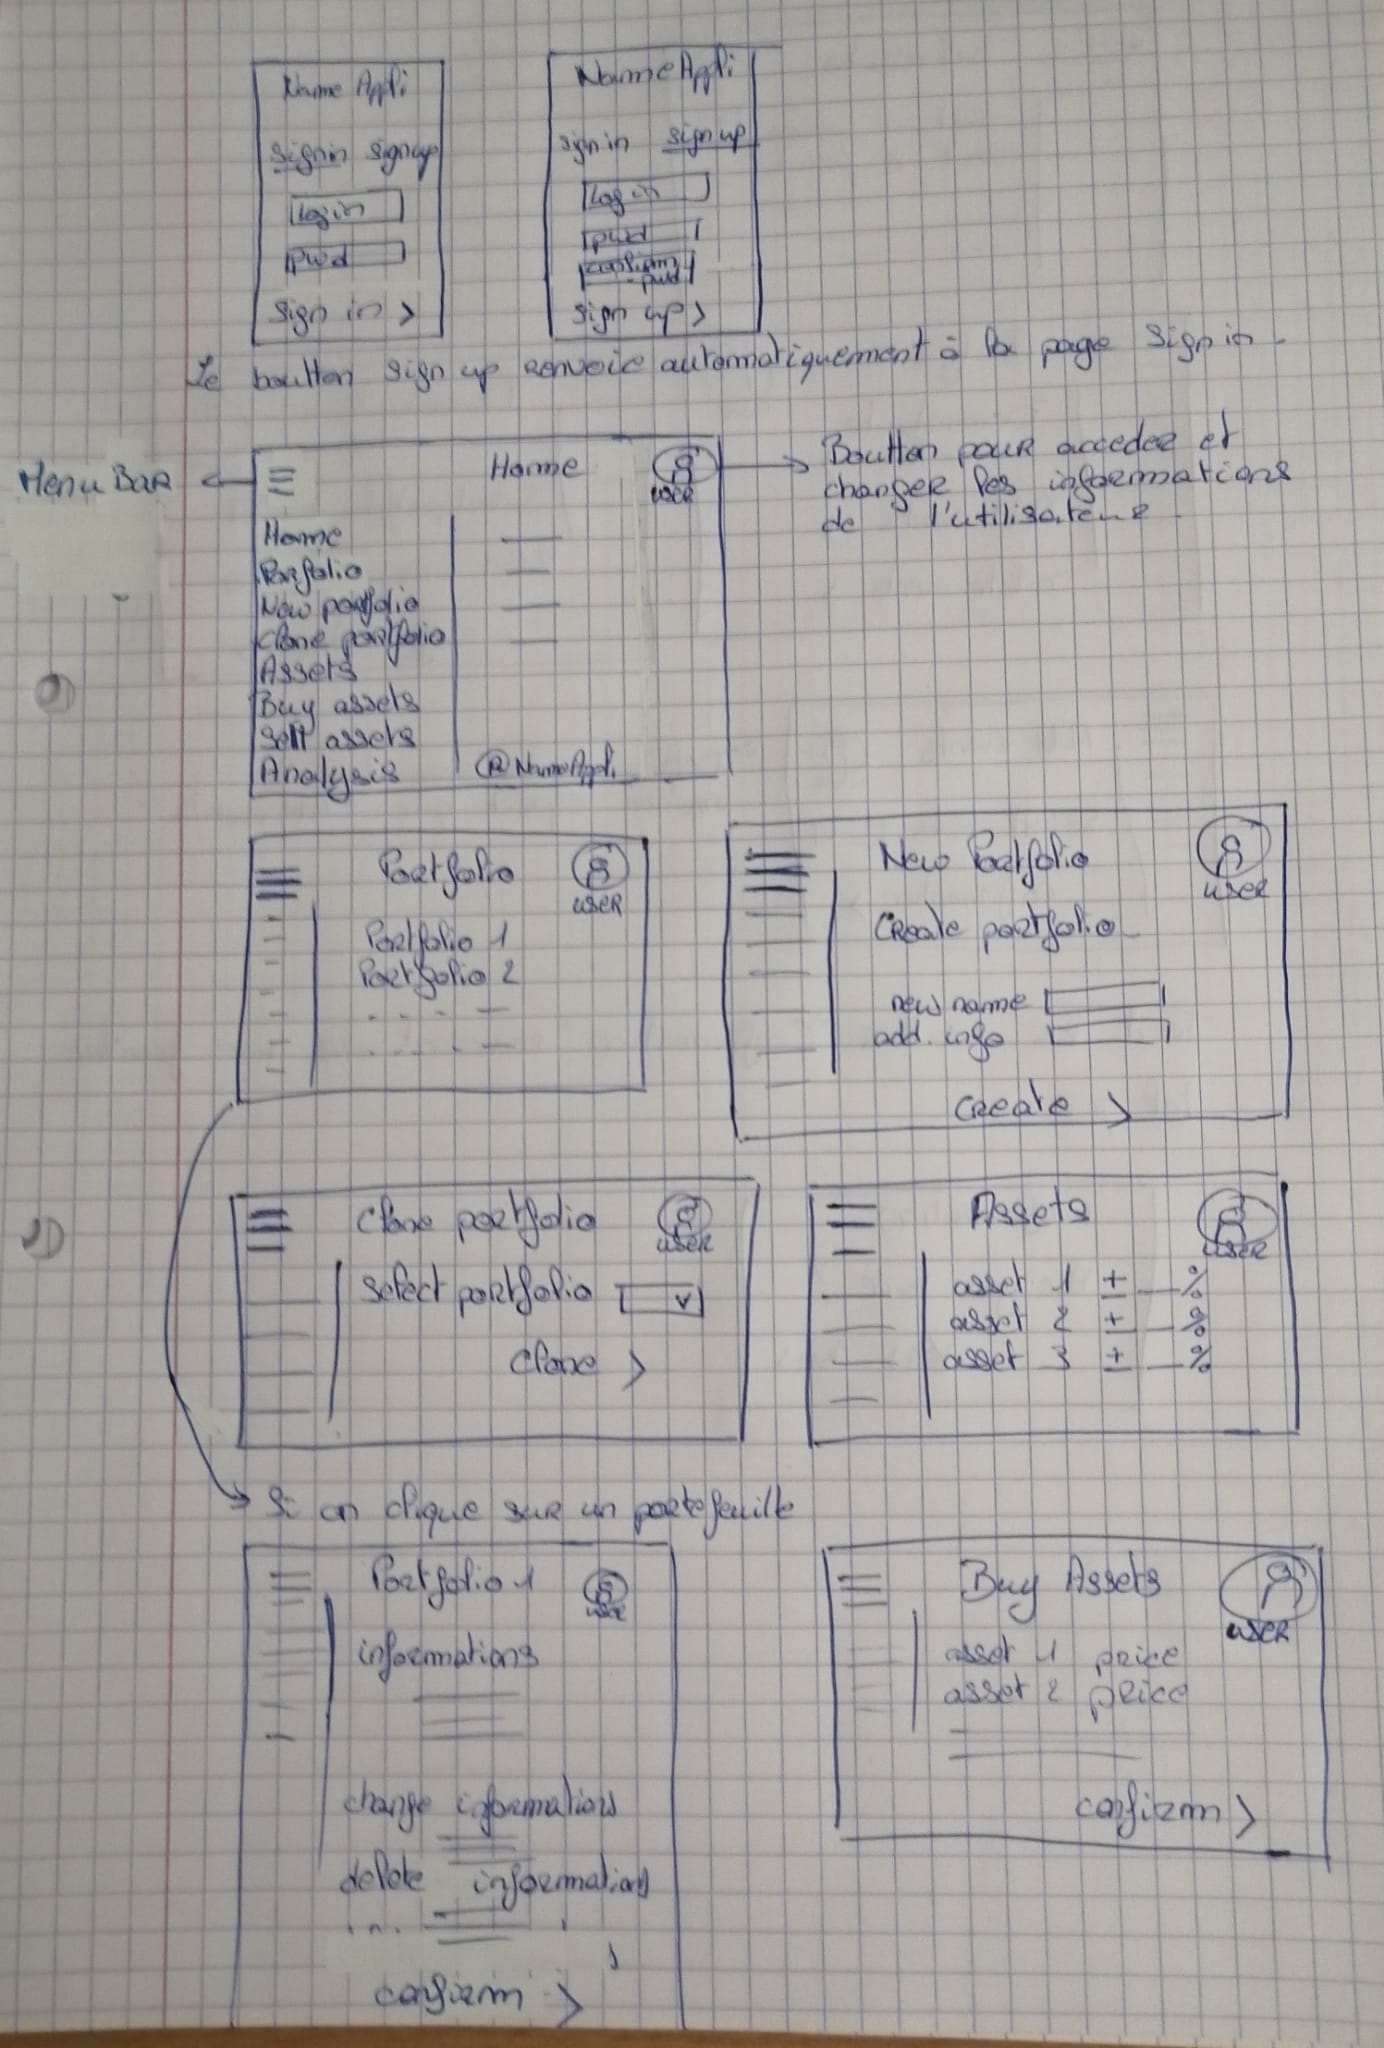 Name Appli
Signin signup
Login
pwd
Sign in >
Name Appli
sign in sign up
Login
pwd
confirm pwd
sign up >
Le boutton sign up renvoie automatiquement à la page sign in.
Menu Bar
Home
USER
Boutton pour acceder et
changer les informations
de l'utilisateur
Home
Porfolio
New portfolio
Clone portfolio
Assets
Buy assets
Sell assets
Analysis
® Name Appli
Portfolio
USER
Portfolio 1
Portfolio 2
New Portfolio
USER
Create portfolio
new name
add. info
Create >
Clone portfolio
USER
Select portfolio
Clone >
Assets
USER
asset 1 ± __ %
asset 2 ± __ %
asset 3 ± __ %
Si on clique sur un portefeuille
Portfolio 1
USER
informations
change informations
delete informations
confirm >
Buy Assets
USER
asset 1 price
asset 2 price
confirm >